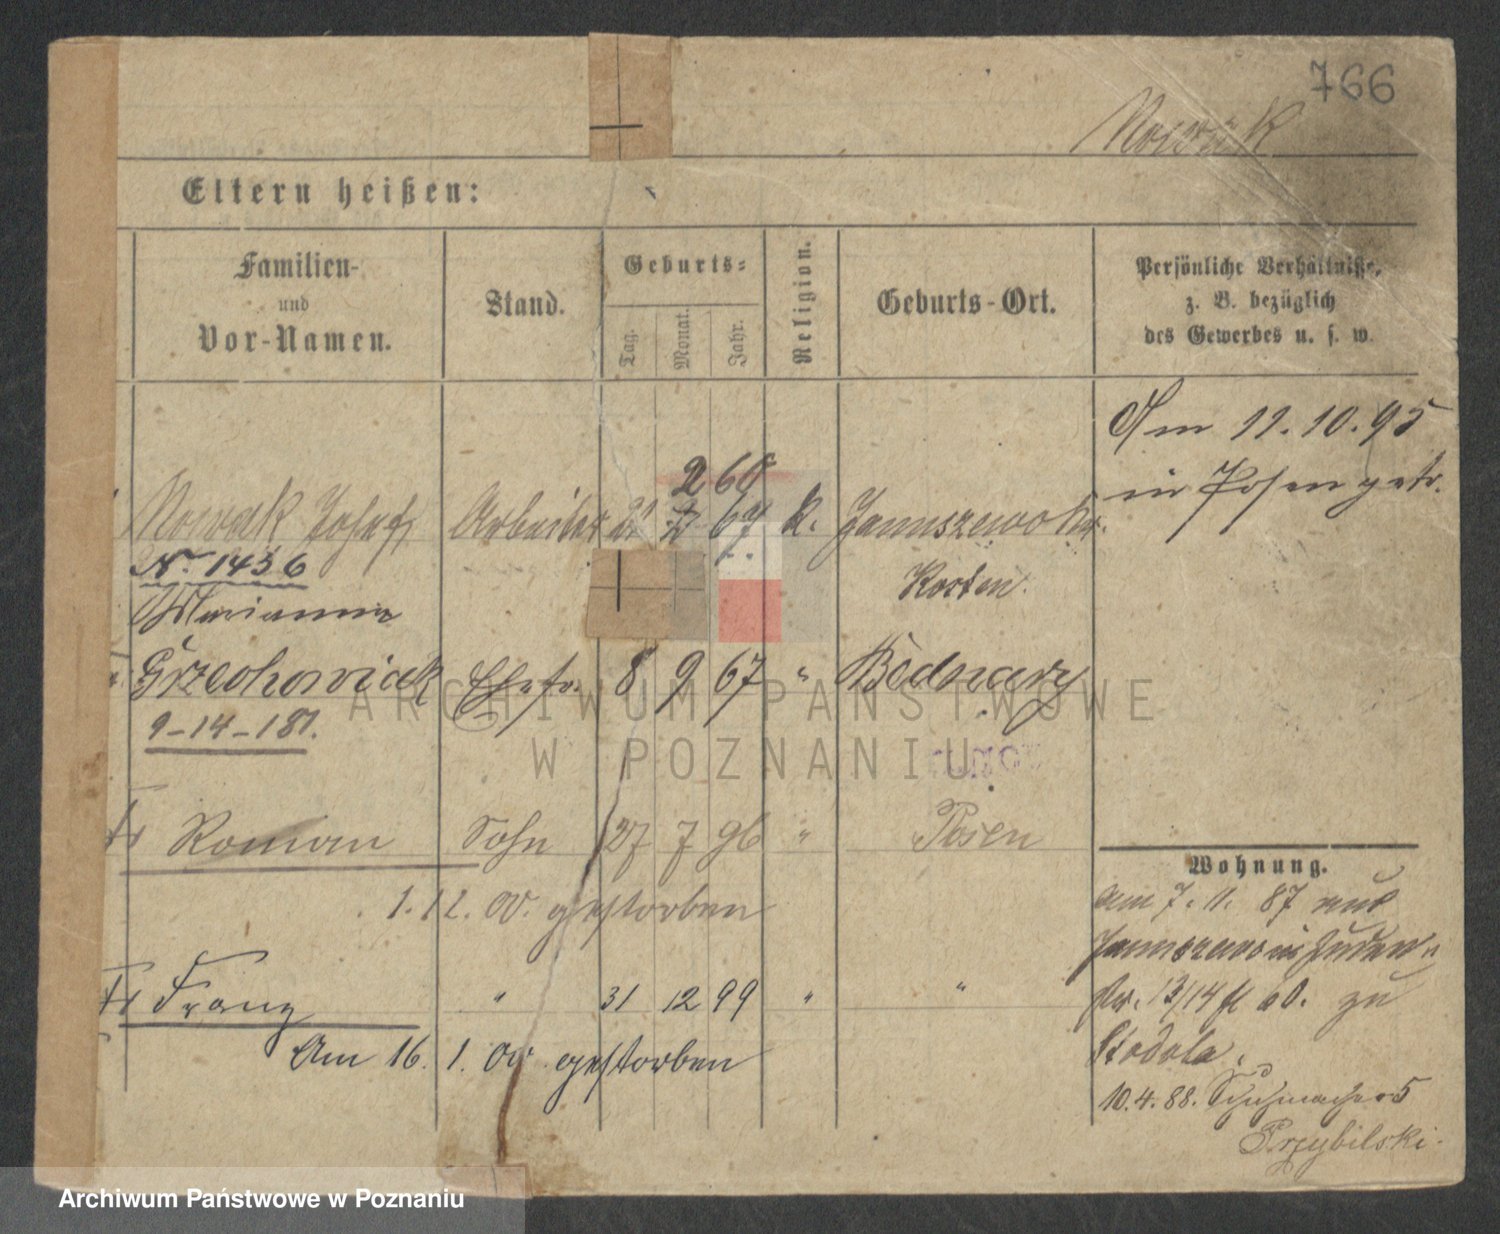 766
Nowak
Eltern heißen:
Familien-
und
Vor-Namen.
Stand.
Geburts-
Tag.
Monat.
Jahr.
Religion.
Geburts-Ort.
Persönliche Verhältnisse,
z. B. bezüglich
des Gewerbes u. s. w.
Am 11.10.95
in Posen getr.
2 60
Nowak Josef Arbeiter 21 2 67 k. Januszewo Kr.
Kosten.
№ 1436
Marianna
Grzechowiak Ehefr. 8 9 67 " Bednary
9-14-181.
Roman Sohn 27 7 96 " Posen
1.12.00. gestorben
Franz " 31 12 99 " "
Am 16. 1. 00 gestorben
Wohnung.
am 7. 11. 87 aus
Januszewo in
13/14 zu
Stodola.
10.4.88. Schuhmacher 5
Przybilski.
ARCHIWUM PAŃSTWOWE
W POZNANIU
Archiwum Państwowe w Poznaniu